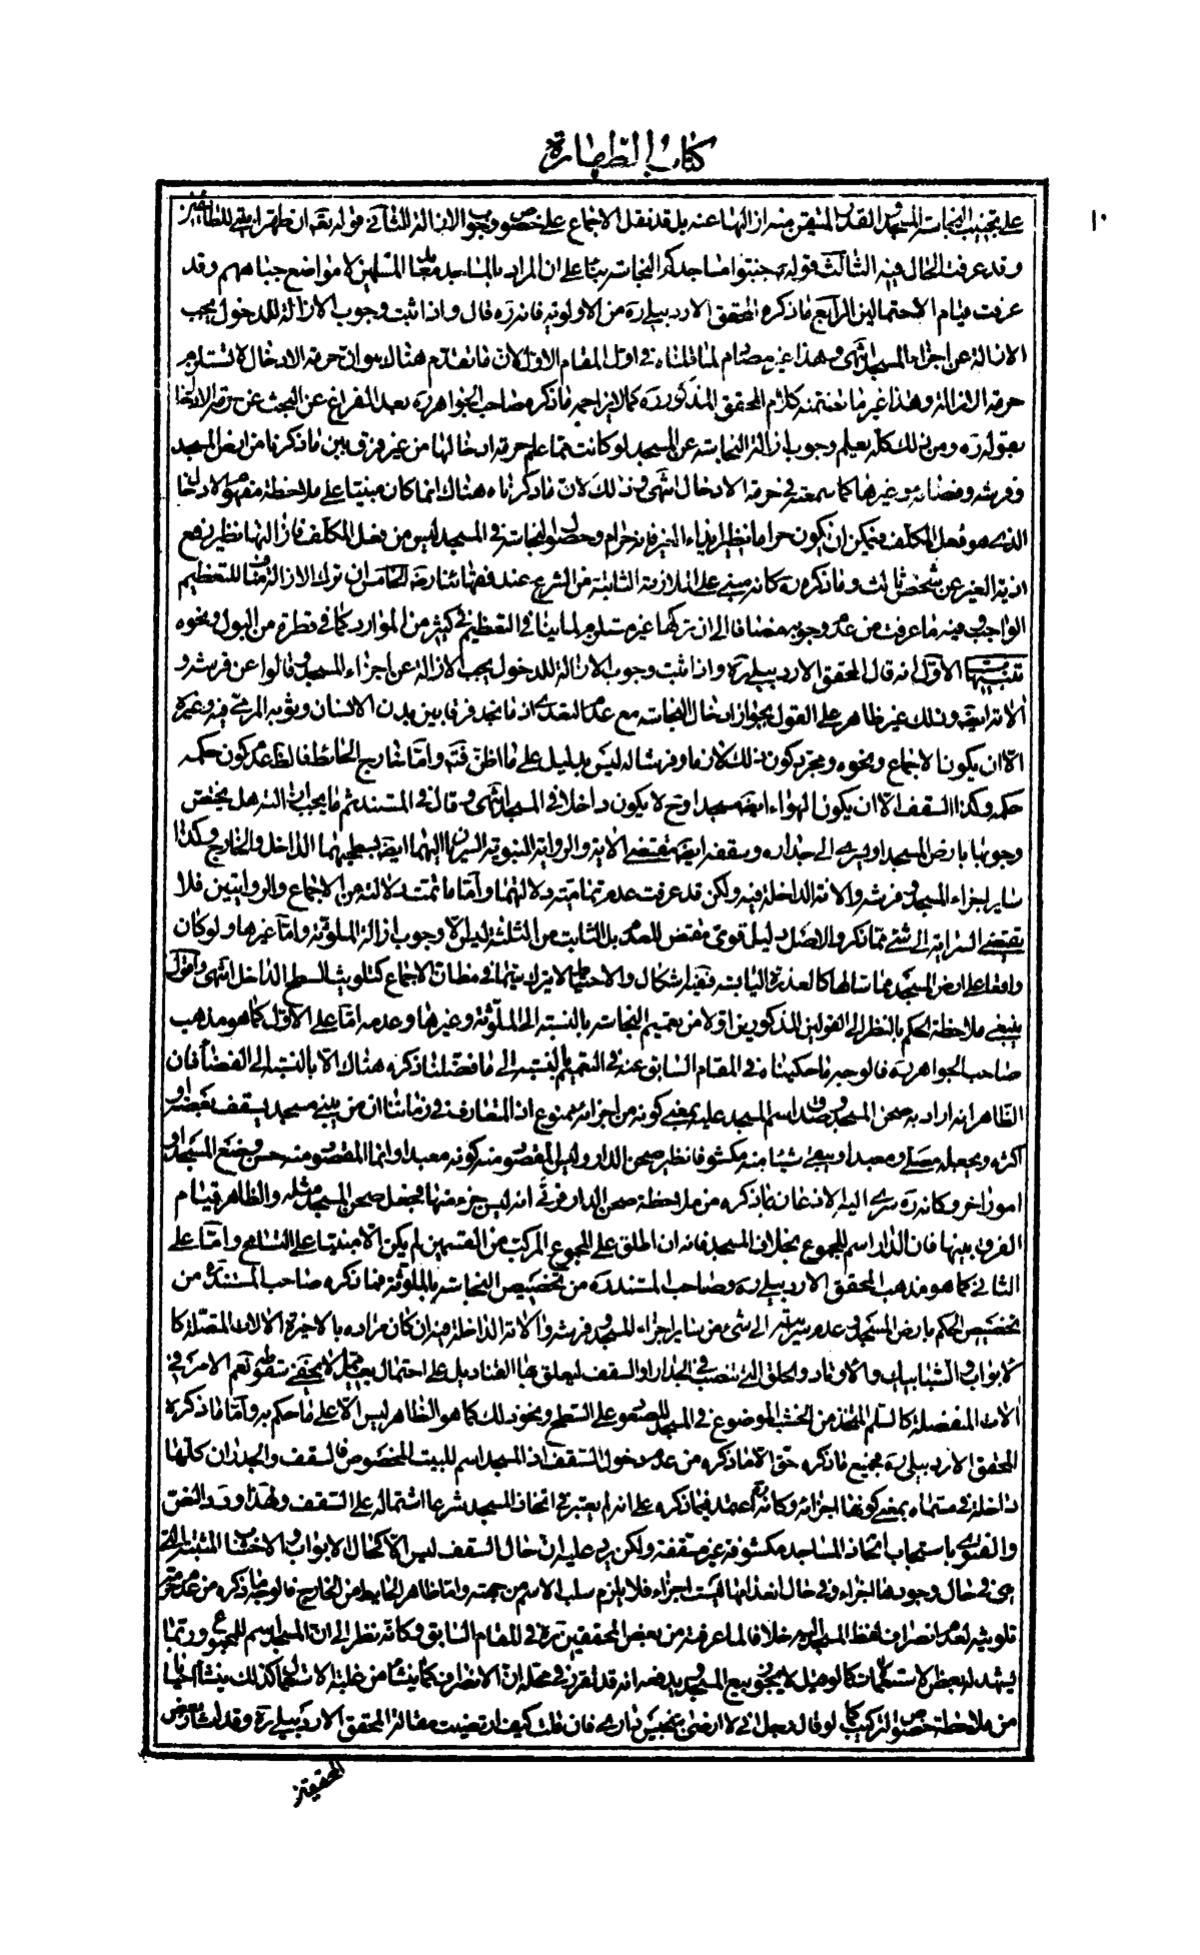 كتاب الطهارة
١٠
على تجنيب النجاسة المسجد والقدر المتيقن منه ازالتها عنه بل قد نقل الاجماع على خصوص وجوب الازالة الثاني قوله تعالى ان طهرا بيتي للطائفين
وقد عرفت الحال فيه الثالث قوله جنبوا مساجدكم النجاسة بناء على ان المراد بالمساجد معابد المسلمين لا مواضع جباههم وقد
عرفت قيام الاحتمالين الرابع ما ذكره المحقق الاردبيلي ره من الاولوية فانه ره قال واذا ثبت وجوب الازالة للدخول يجب
الازالة عن اجزاء المسجد انتهى وهذا غير مصادم لما قلناه في اول المقام الاول لان ما تقدم هناك هو ان حرمة الادخال لا تستلزم
حرمة الازالة وهذا غير ما تضمنه كلام المحقق المذكور ره كما لا يزاحمه ما ذكره صاحب الجواهر ره بعد الفراغ عن البحث عن حرمة الادخال
بقوله ره ومن ذلك كله يعلم وجوب ازالة النجاسة عن المسجد لو كانت مما علم حرمة ادخالها من غير فرق بين ما ذكرنا من ارض المسجد
وفرشه وفضائه وغيرها كما سمعته في حرمة الادخال انتهى وذلك لان ما ذكرناه هناك انما كان مبنيا على ملاحظة مفهوم الادخال
الذي هو فعل المكلف فيمكن ان يكون حراما نظير ايذاء الغير فانه حرام وحصول النجاسة في المسجد ليس من فعل المكلف فازالتها نظير رفع
اذية الغير عن شخص ثالث وما ذكره ره كانه مبني على الملازمة الثابتة من الشرع عند فقهائنا رض الخامس ان ترك الازالة مناف للتعظيم
الواجب وفيه ما عرفت من عدم وجوبه مضافا الى ان تركها غير مستلزم لما ينافي التعظيم في كثير من الموارد كما في قطرة من البول ونحوه
تنبيهات الاول انه قال المحقق الاردبيلي ره واذا ثبت وجوب الازالة للدخول يجب الازالة عن اجزاء المسجد وقالوا عن فرشه و
الاته ايضا وذلك غير ظاهر على القول بجواز ادخال النجاسة مع عدم التعدي اذ ما نجد فرقا بين بدن الانسان وثوبه المرمى فيه وغيره
الا ان يكون الاجماع ونحوه ومجرد كون ذلك لازما وفرشا له ليس بدليل على ما اظن فتأمل واما خارج الحائط فالظاهر عدم كون حكمه
حكمه وكذا السقف الا ان يكون الهواء ايضا مسجدا وح لا يكون داخلا في المسجد انتهى وقال في المستند ثم ما يجب ازالته هل يختص
وجوبها بارض المسجد او يسري الى جداره وسقفه ايضا مقتضى الاية والرواية النبوية السريان اليهما ايضا بسطحيهما الداخل والخارج وكذا
ساير اجزاء المسجد وفرشه والالة الداخلة فيه ولكن قد عرفت عدم تمامية دلالتهما واما ما تمت دلالته من الاجماع والروايتين فلا
يقتضي السراية الى شئ مما ذكر والاصل دليل قوي مقتض للعدم بل الثابت من الثلثة ليس الا وجوب ازالة الملوثة واما غيرها ولو كان
واقعا على ارض المسجد مماسا لها كالعذرة اليابسة ففيه اشكال والاحتياط لا يترك سيما في مظان الاجماع كتلويث السطح الداخل انتهى واقول
ينبغي ملاحظة الحكم بالنظر الى القولين المذكورين اولا من تعميم النجاسة بالنسبة الى الملوثة وغيرها وعدمه اما على الاول كما هو مذهب
صاحب الجواهر ره فالوجه ما حكيناه في المقام السابق عنه في التعميم بالنسبة الى ما فصلنا ذكره هناك الا بالنسبة الى الفضاء فان
الظاهر انه اراد به صحن المسجد وصدق اسم المسجد عليه بمعنى كونه من اجزائه ممنوع اذ المتعارف في زماننا ان من يبني مسجدا يسقف بعضه او
اكثره ويجعله مصلى ومعبدا ويبقى شيئا منه مكشوفا نظير صحن الدار وليس المقصود منه كونه معبدا وانما المقصود منه حسن وضع المسجد او
امور اخر وكانه ره سرى اليه الاذعان بما ذكره من ملاحظة صحن الدار فرأى انه ليس جزء منها فجعل صحن المسجد مثله والظاهر قيام
الفرق بينهما فان الدار اسم للمجموع بخلاف المسجد فانه ان اطلق على المجموع المركب من القسمين لم يكن الا مبنيا على التسامح واما على
الثاني كما هو مذهب المحقق الاردبيلي ره وصاحب المستند ره من تخصيص النجاسة بالملوثة فما ذكره صاحب المستند ره من
تخصيص الحكم بارض المسجد وعدم سرايته الى شئ من ساير اجزاء المسجد وفرشه والالة الداخلة فيه ان كان مراده بالاخيرة الالات المتصلة كا
لابواب والشبابيك والاوتاد والحلق التي تنصب في الجدار او السقف ليعلق بها القناديل على احتمال بعيد لا يخفى سقوطه نعم الامر في
الات المنفصلة كالسلم المتخذ من الخشب الموضوع في المسجد للصعود على السطح ونحو ذلك كما هو الظاهر ليس الا على ما حكم به واما ما ذكره
المحقق الاردبيلي ره فجميع ما ذكره حق الا ما ذكره من عدم دخول السقف اذ المسجد اسم للبيت المخصوص فالسقف والجدران كلها
داخلة في مسماه بمعنى كونها اجزائه وكانه اعتمد فيما ذكره على انه لم يعتبر في اتخاذ المسجد شرعا اشتماله على السقف ولهذا ورد النص
والفتوى باستحباب اتخاذ المساجد مكشوفة غير مسقفة ولكن يرد عليه ان حال السقف ليس الا كحال الابواب والاخشاب المثبتة التي
هي في حال وجودها اجزاء وفي حال انعدامها ليست اجزاء فلا يلزم سلب الاسم من جهته واما ظاهر الحايط من الخارج فالوجه ما ذكره من عدم حرمة
تلويثه لعدم انصراف لفظ المسجد اليه خلافا لما عرفته من بعض المحققين ره في المقام السابق وكانه نظر الى ان المسجد اسم للمجموع وربما
يشهد له بعض الاستعمالات كما لو قيل لا يجوز بيع المسجد ويدفعه انه قد تقرر في محله ان الانصراف كما ينشأ من غلبة الاستعمال كذلك ينشأ احيانا
من ملاحظة خصوص التركيب كما لو قال رجل اني لا ارضى بتنجيس داري فان قلت كيف ارتضيت مقالة المحقق الاردبيلي ره وقد اشار بعض
المحققين